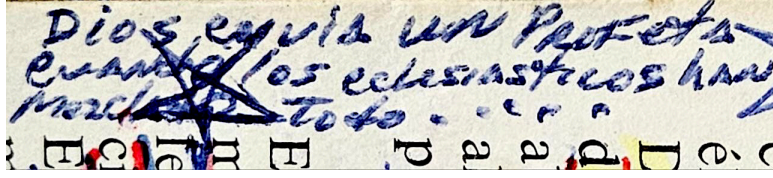 Dios envia un Profeta
cuando los eclesiasticos han
mezclado Todo . . . . .